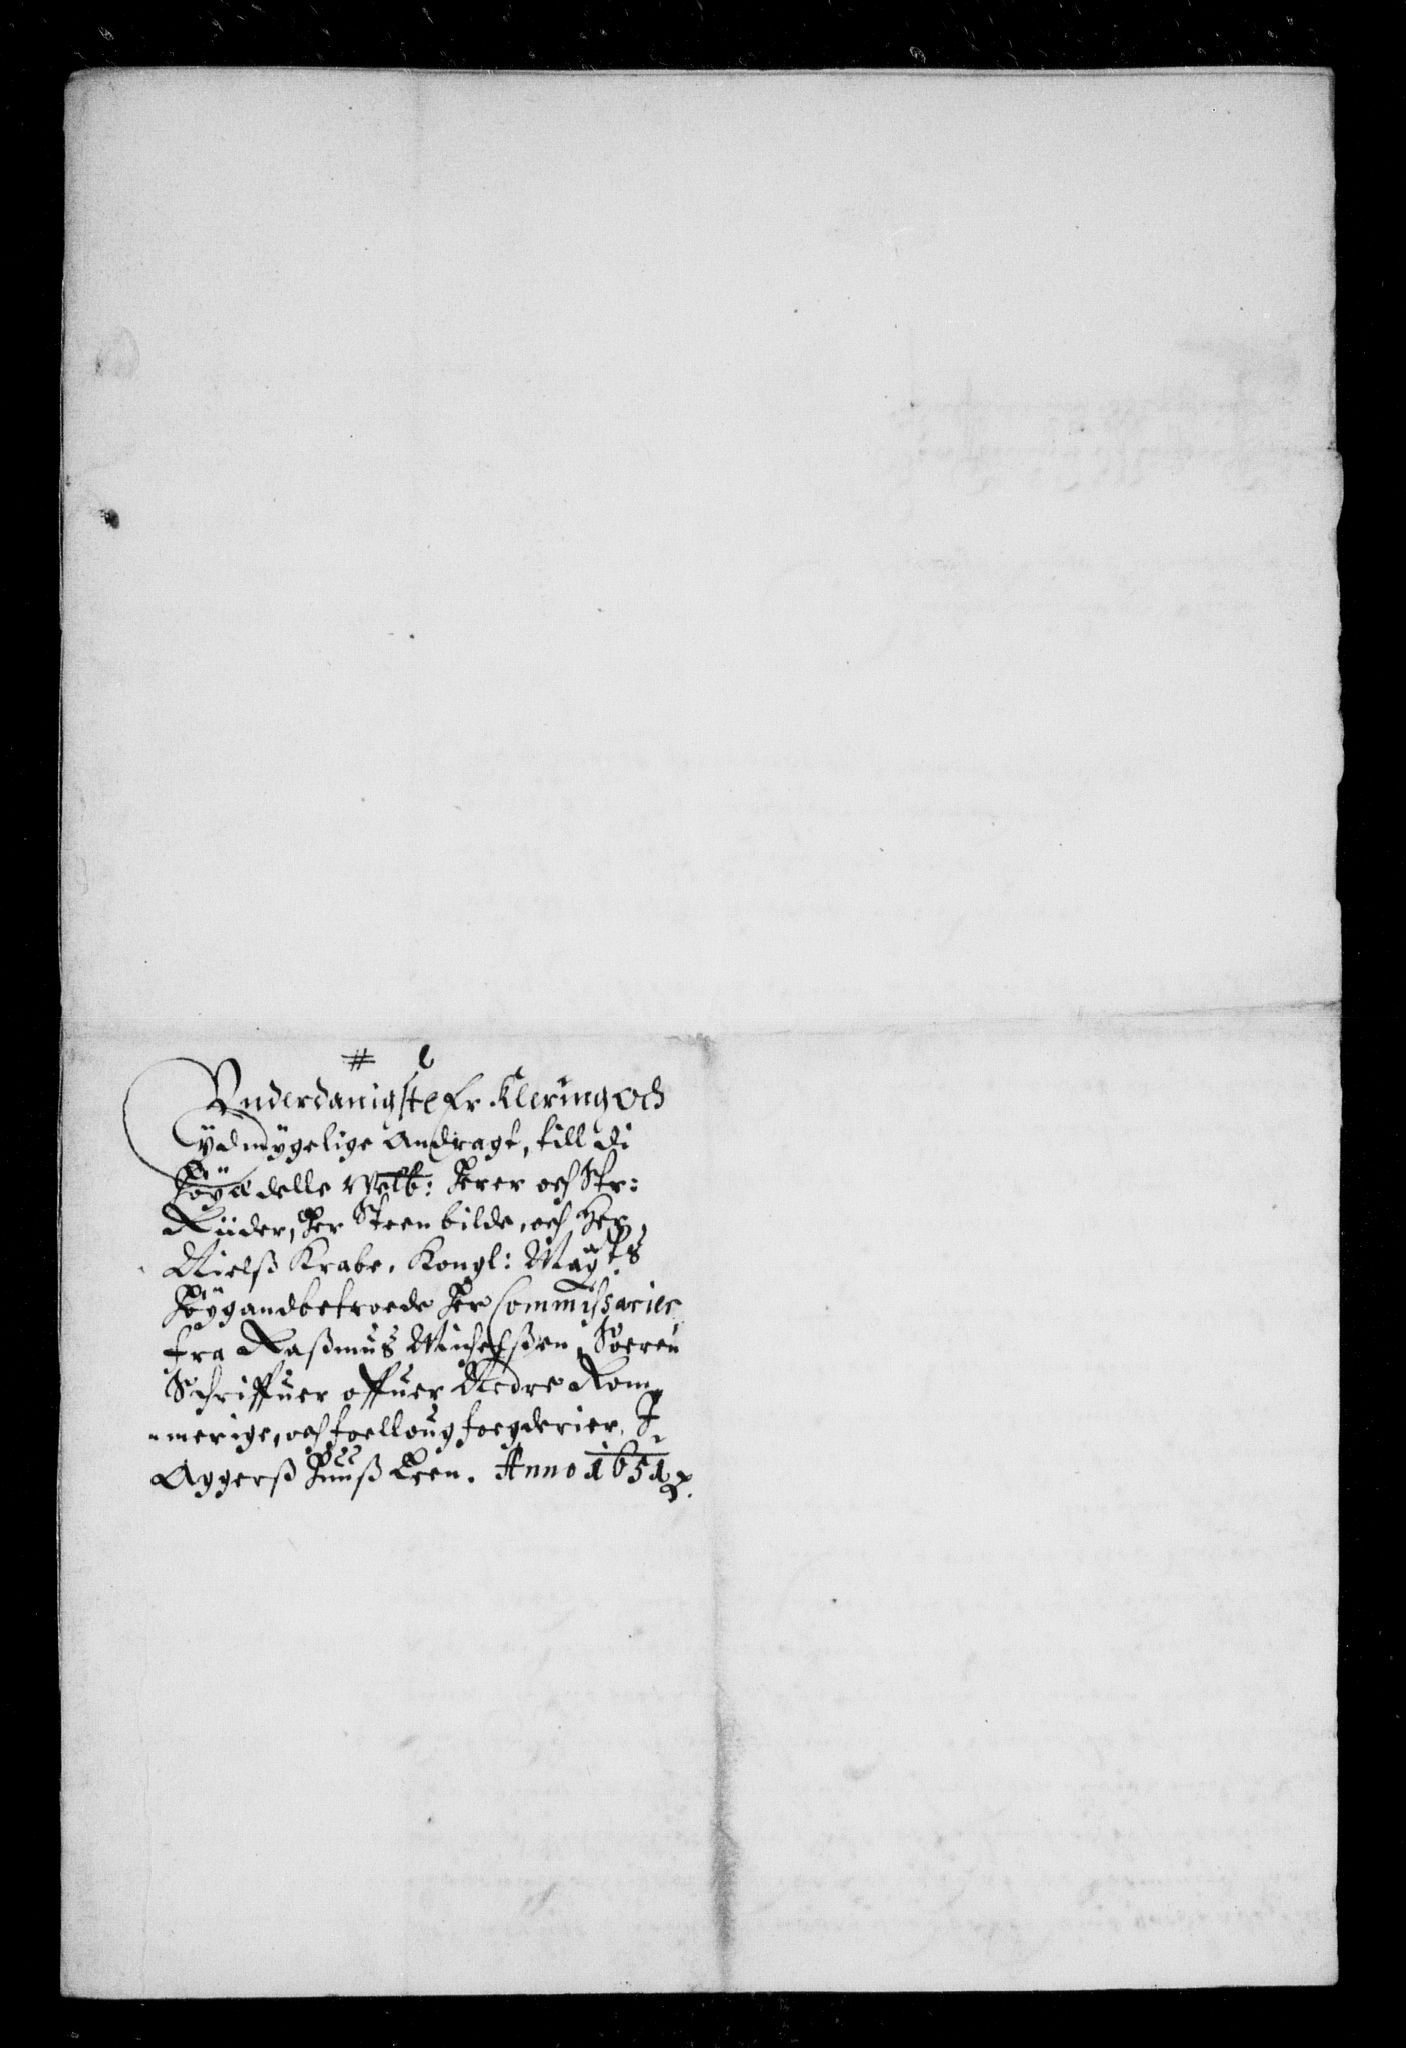 # 6
Vnderdanigste Er Klering och
ydmygelige Andragt, till di
Höyædelle Welb: Herer och Str:
Riider, Her Steen bilde, och Her
Nielß Krabe, Kongl: Maytts
Höyganbetroede Her Commissarier
fra Raßmus Michelßen, Soeren
Schriffuer offuer Nedre Rom,,
,,merige, och foelloug foegderier, I
Aggerß Huuß Leen. Anno 1651